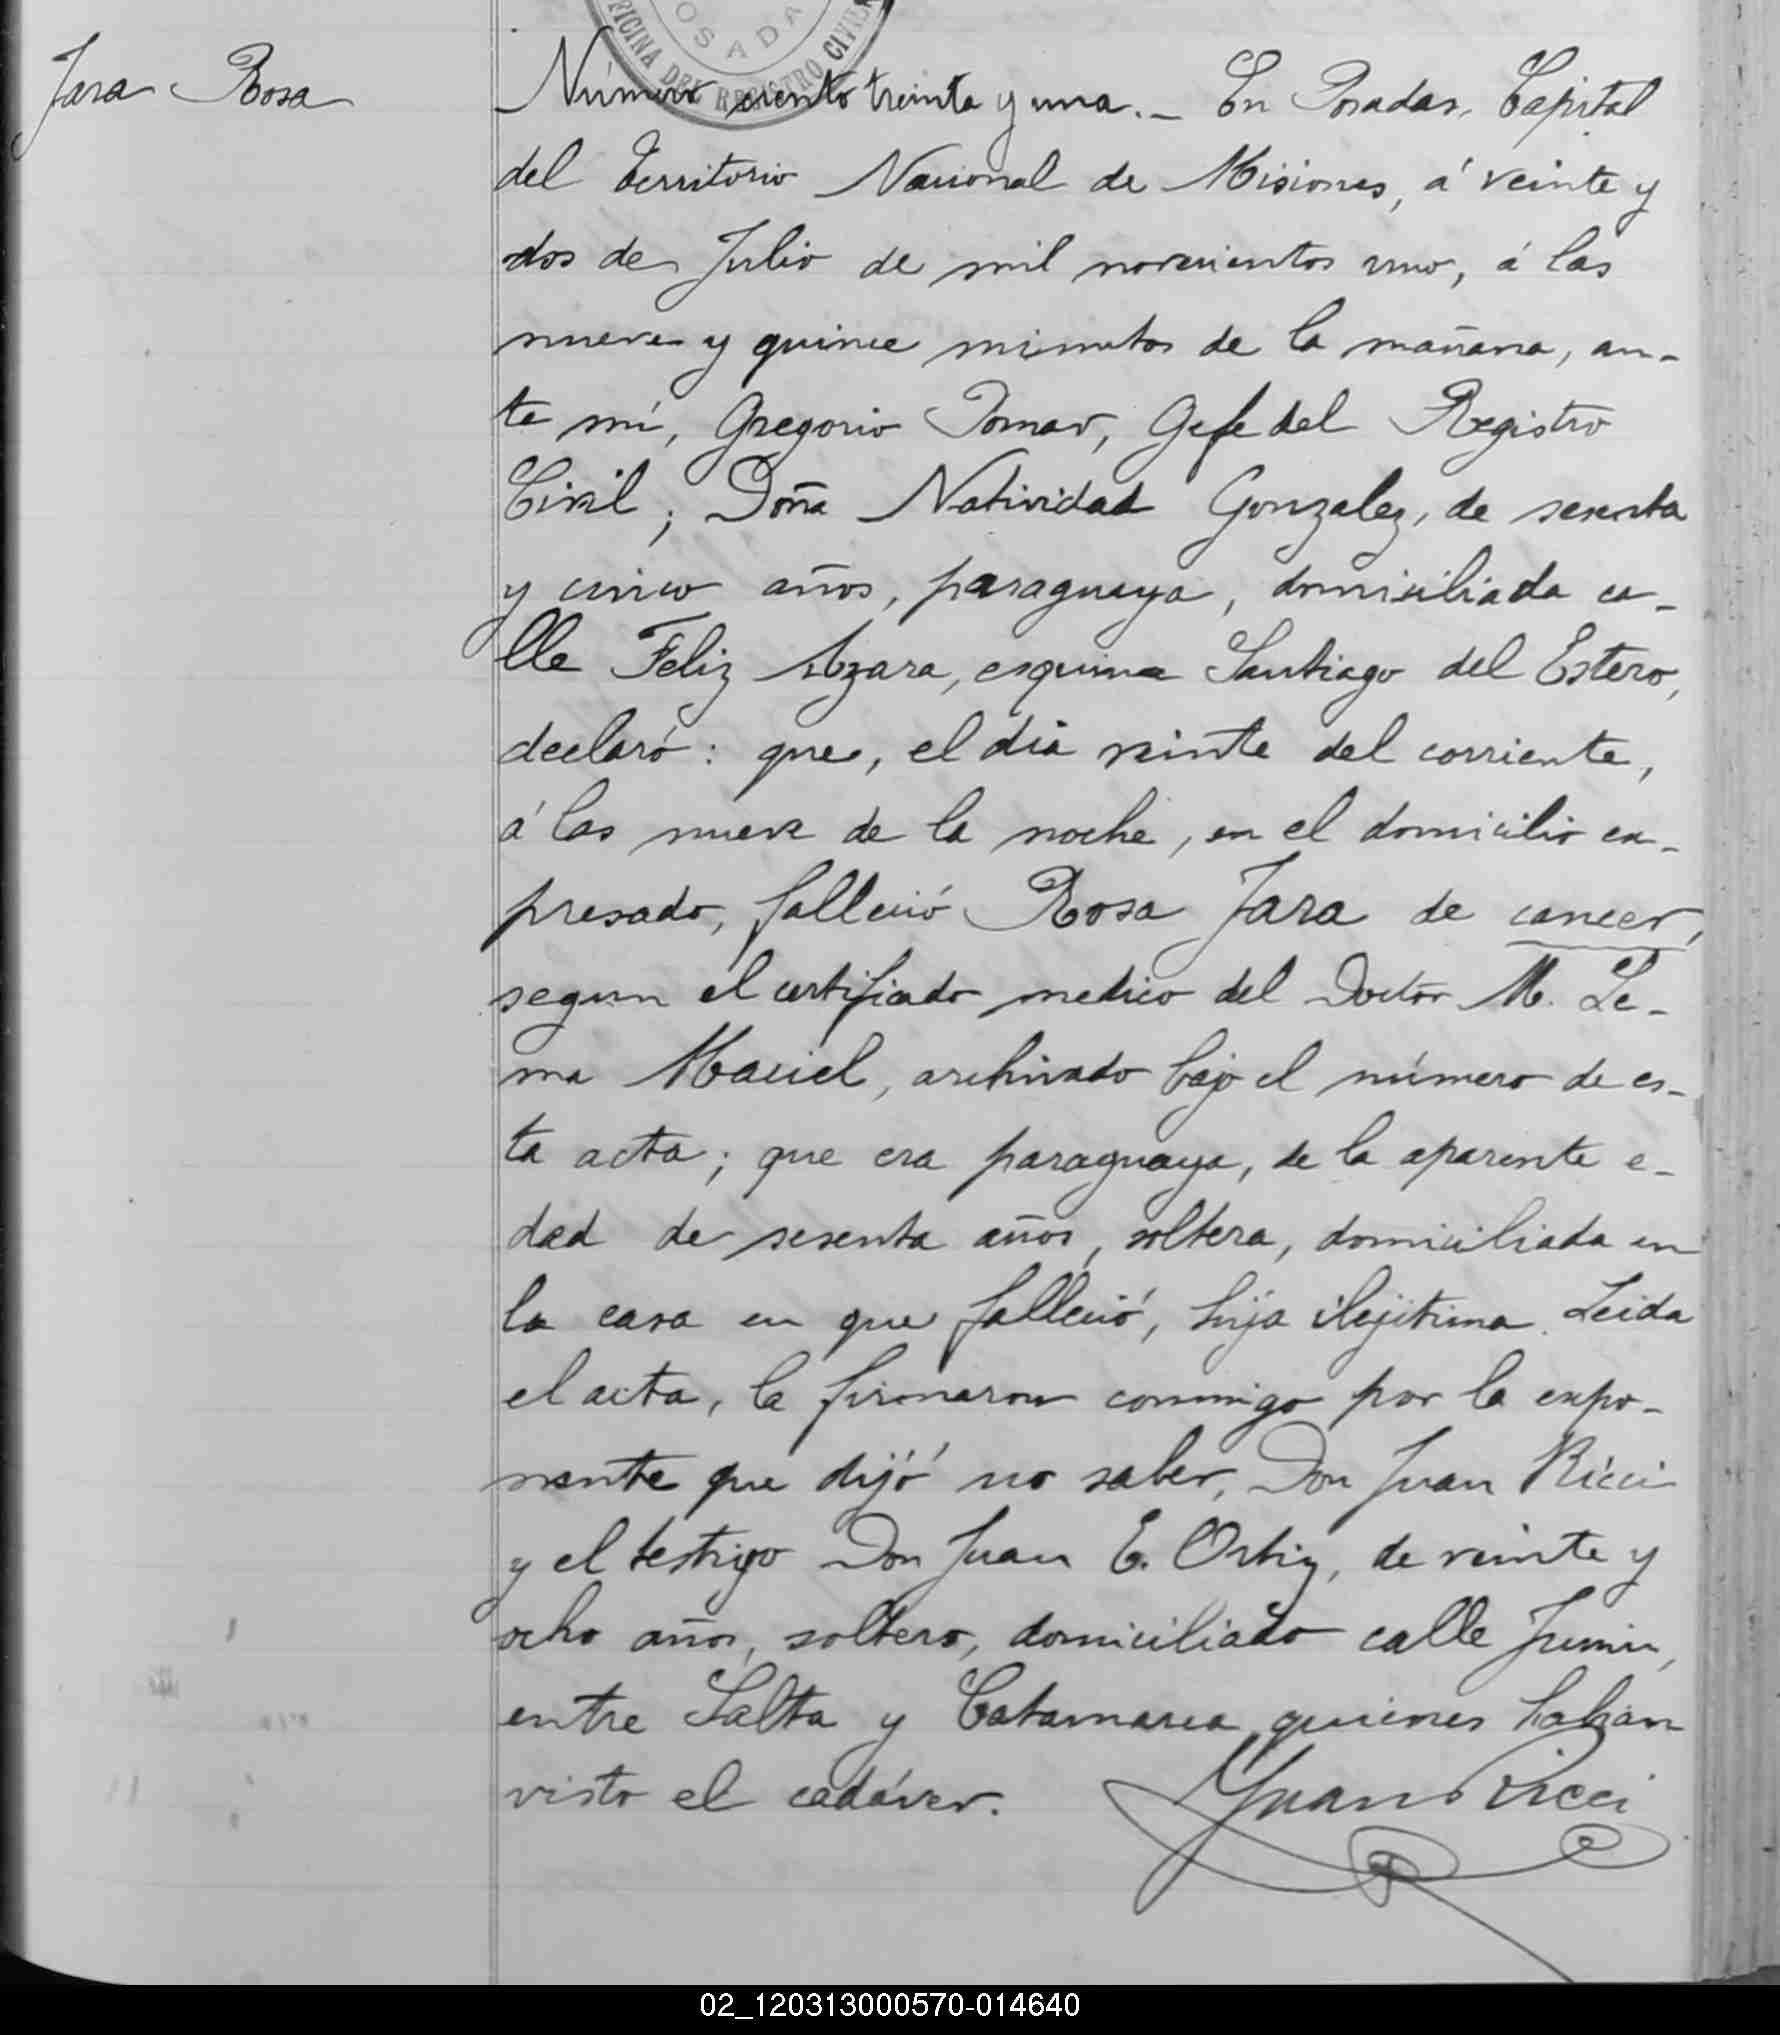 OFICINA DEL REGISTRO CIVIL
POSADAS
Jara Rosa
Número ciento treinta y una.- En Posadas, Capital
del Territorio Nacional de Misiones, á veinte y
dos de Julio de mil novecientos uno, á las
nueve y quince minutos de la mañana, an-
te mí, Gregorio Pomar, Gefe del Registro
Civil; Doña Natividad Gonzalez, de sesenta
y cinco años, paraguaya, domiciliada ca-
lle Feliz Azara, esquina Santiago del Estero,
declaró: que, el dia veinte del corriente,
á las nueve de la noche, en el domicilio ex-
presado, falleció Rosa Jara de cancer,
segun el certificado medico del Doctor M. Le-
ma Maciel, archivado bajo el número de es-
ta acta; que era paraguaya, de la aparente e-
dad de sesenta años, soltera, domiciliada en
la casa en que falleció, hija ilejitima. Leida
el acta, la firmaron conmigo por la expo-
nente que dijó no saber, Don Juan Ricci
y el testigo Don Juan E. Ortiz, de veinte y
ocho años, soltero, domiciliado calle Junin,
entre Salta y Catamarca, quienes habian
visto el cadáver. Juan Ricci
02_120313000570-014640